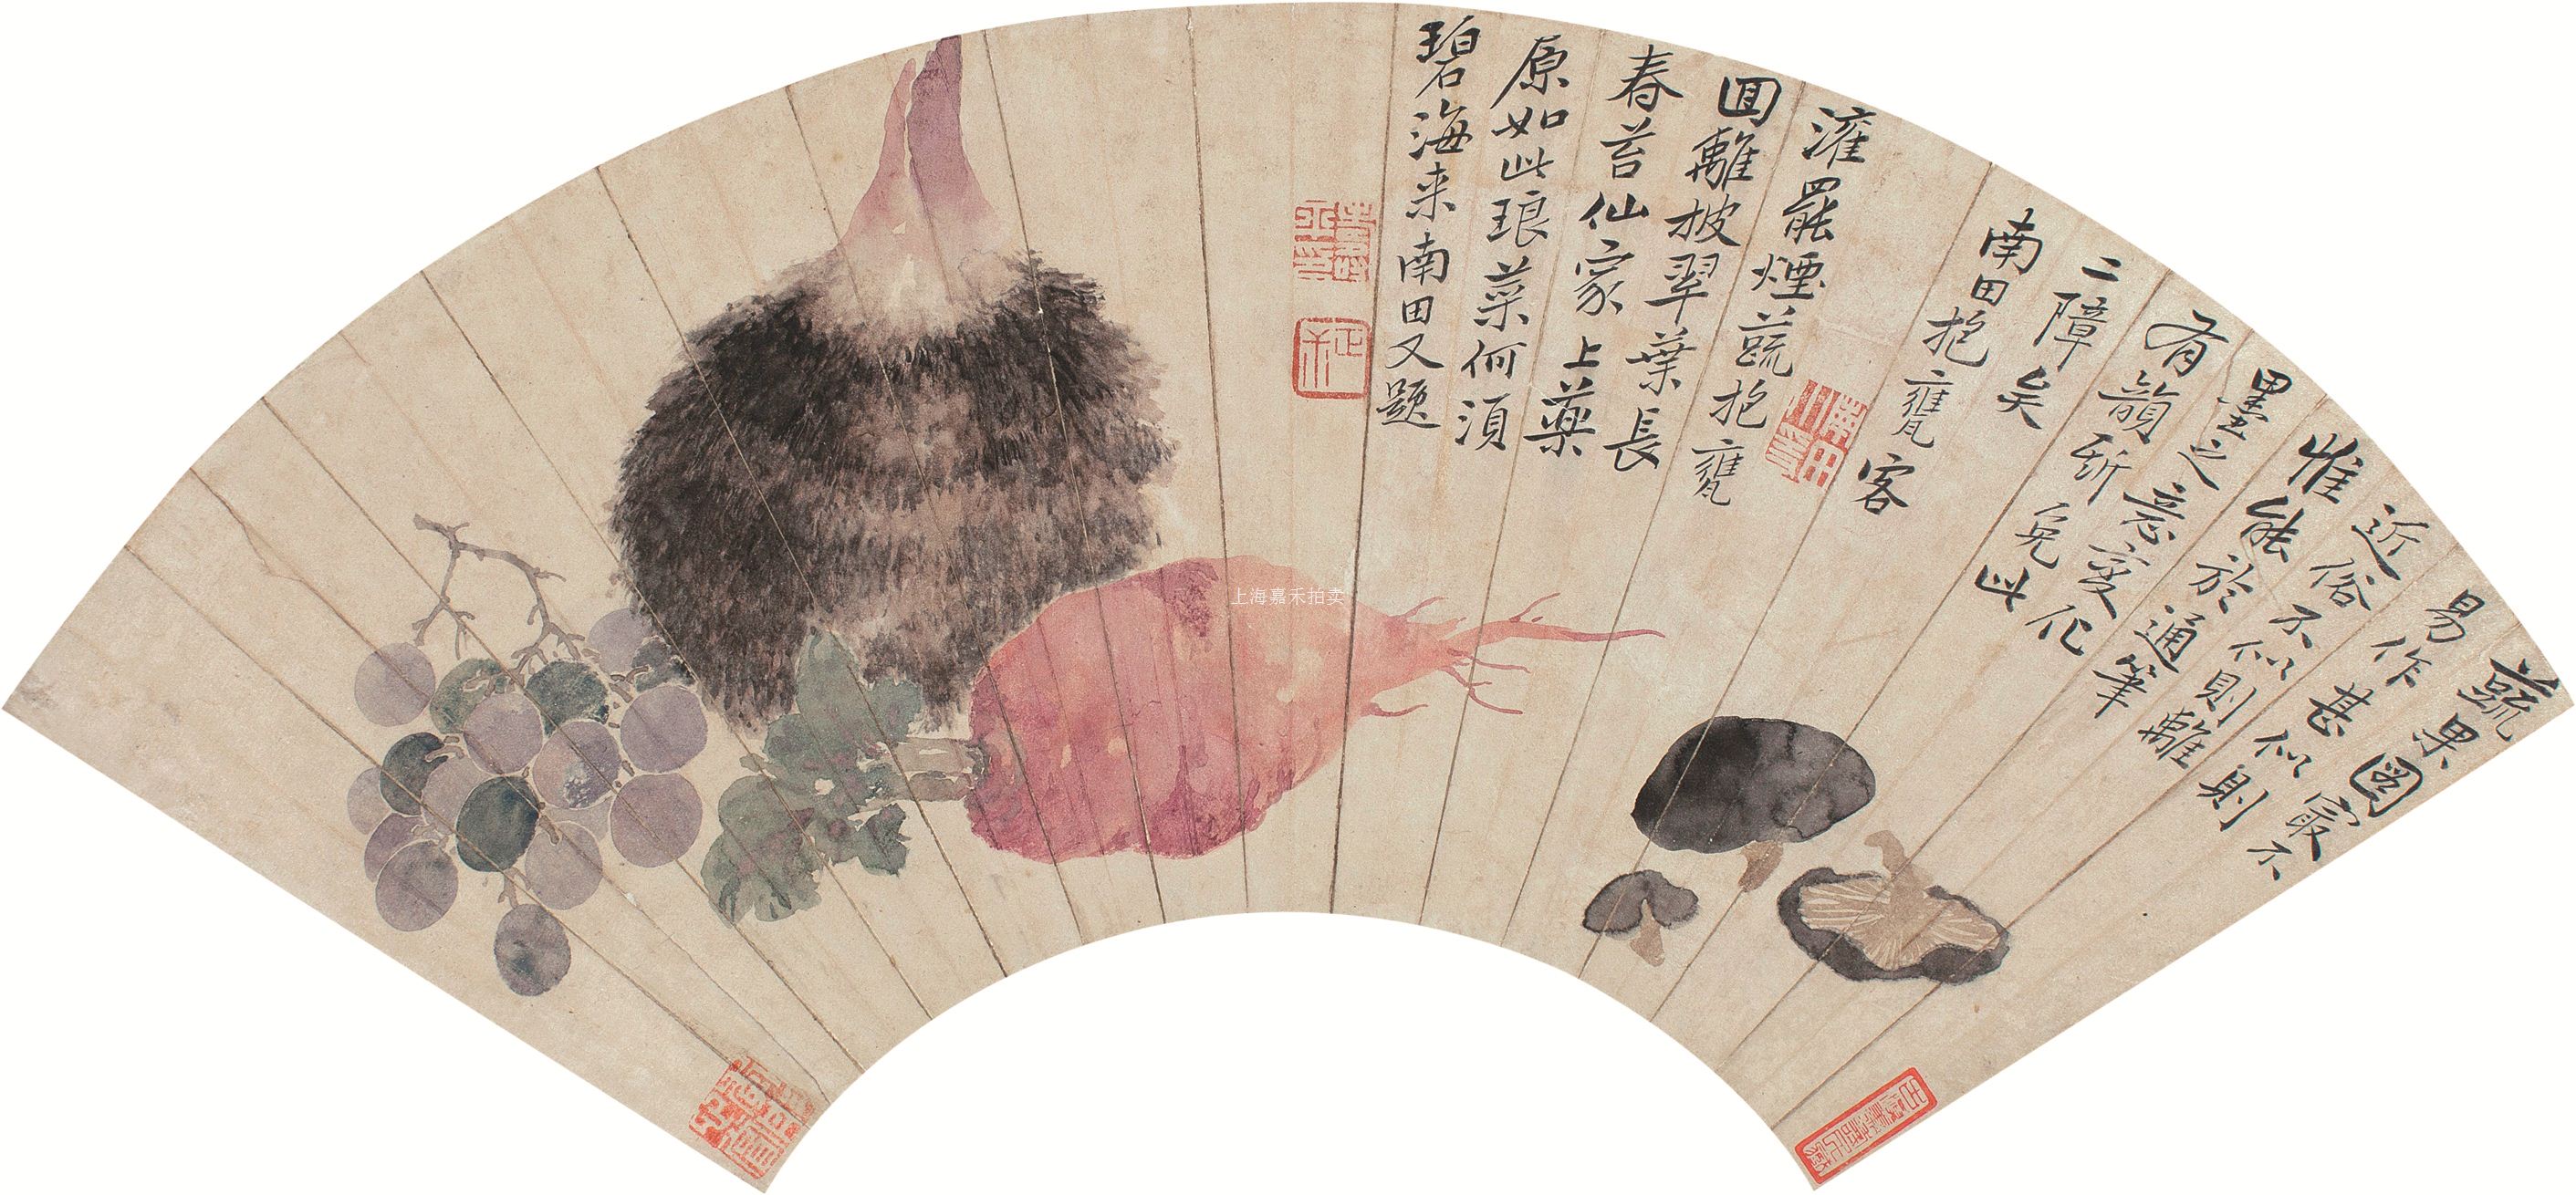 蔬果圖最不
易作甚似則
近俗不似則離
惟能於通筆
墨之意變化
有韻斯免此
二障矣
南田抱甕客
灌罷煙蔬抱甕
回離披翠葉長
春苔仙家上藥
原如此琅菜何須
碧海来南田又題
上海嘉禾拍卖